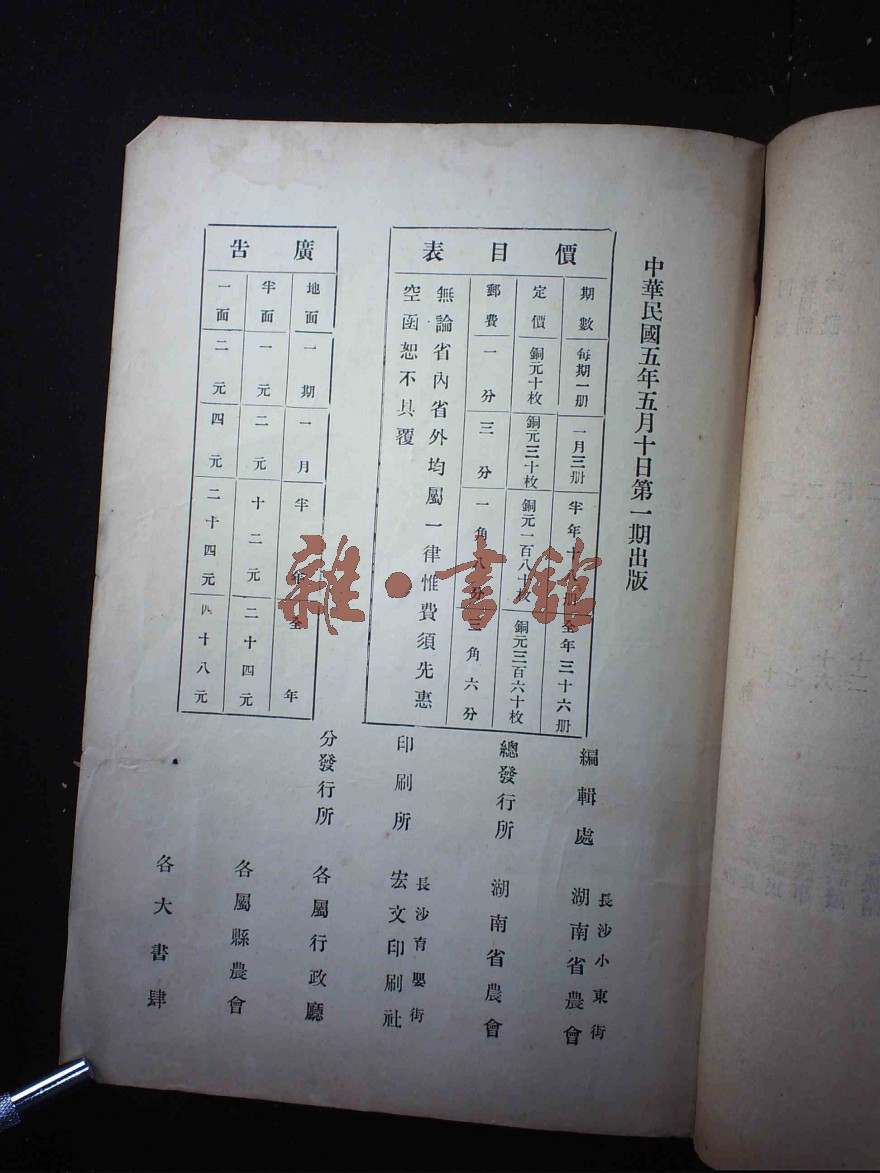 中華民國五年五月十日第一期出版
價目表
期數 每期一册 一月三册 半年十 册 全年三十六册
定價 銅元十枚 銅元三十枚 銅元一百八十枚 銅元三百六十枚
郵費 一分 三分 一角八分 三角六分
無論省內省外均屬一律惟費須先惠
空函恕不具覆
廣告
地面 一期 一月 半年 全年
半面 一元 二元 十二元 二十四元
一面 二元 四元 二十四元 四十八元
編輯處 長沙小東街 湖南省農會
總發行所 湖南省農會
印刷所 長沙育嬰街 宏文印刷社
分發行所 各屬行政廳
各屬縣農會
各大書肆
雜·書館